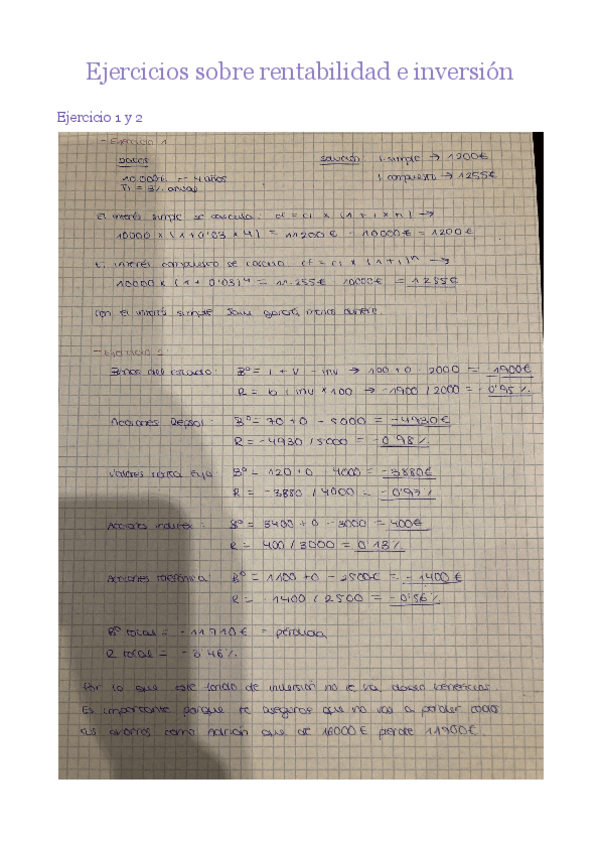 Ejercicios sobre rentabilidad e inversión
Ejercicio 1 y 2
- Ejercicio 1
DATOS
SOLUCIÓN I. simple → 1200€
10.000€ — 4 años
I. compuesto → 1255€
Ti = 3% anual
El interés simple se calcula: cf = ci x (1 + i x n) →
10000 x (1 + 0'03 x 4) = 11200€ - 10000€ = 1200€
El interés compuesto se calcula cf = ci x (1 + i)ⁿ →
10000 x (1 + 0'03)⁴ = 11.255€ 10000€ = 1255€
Con el interés simple ganará menos dinero.
- Ejercicio 2:
Bonos del estado: Bº = I + V - inv → 100 + 0 - 2000 = -1900€
R = b / inv * 100 → -1900 / 2000 = -0'95%
Acciones Repsol: Bº = 70 + 0 - 5000 = -4930€
R = -4930 / 5000 = -0'98%
Valores renta fija: Bº = 120 + 0 - 4000 = -3880€
R = -3880 / 4000 = -0'97%
Acciones : Bº = 3400 + 0 - 3000 = 400€
R = 400 / 3000 = 0'13%
Acciones telefónica: Bº = 1100 + 0 - 2500€ = -1400€
R = -1400 / 2500 = -0'56%
Bº total = -11710€ - pérdida
R total = 46%
Por lo que este fondo de inversión no le va dando beneficios.
Es importante porque te aseguras que no vas a perder todos
los ahorros como Adrián que de 16000€ pierde 11900€.